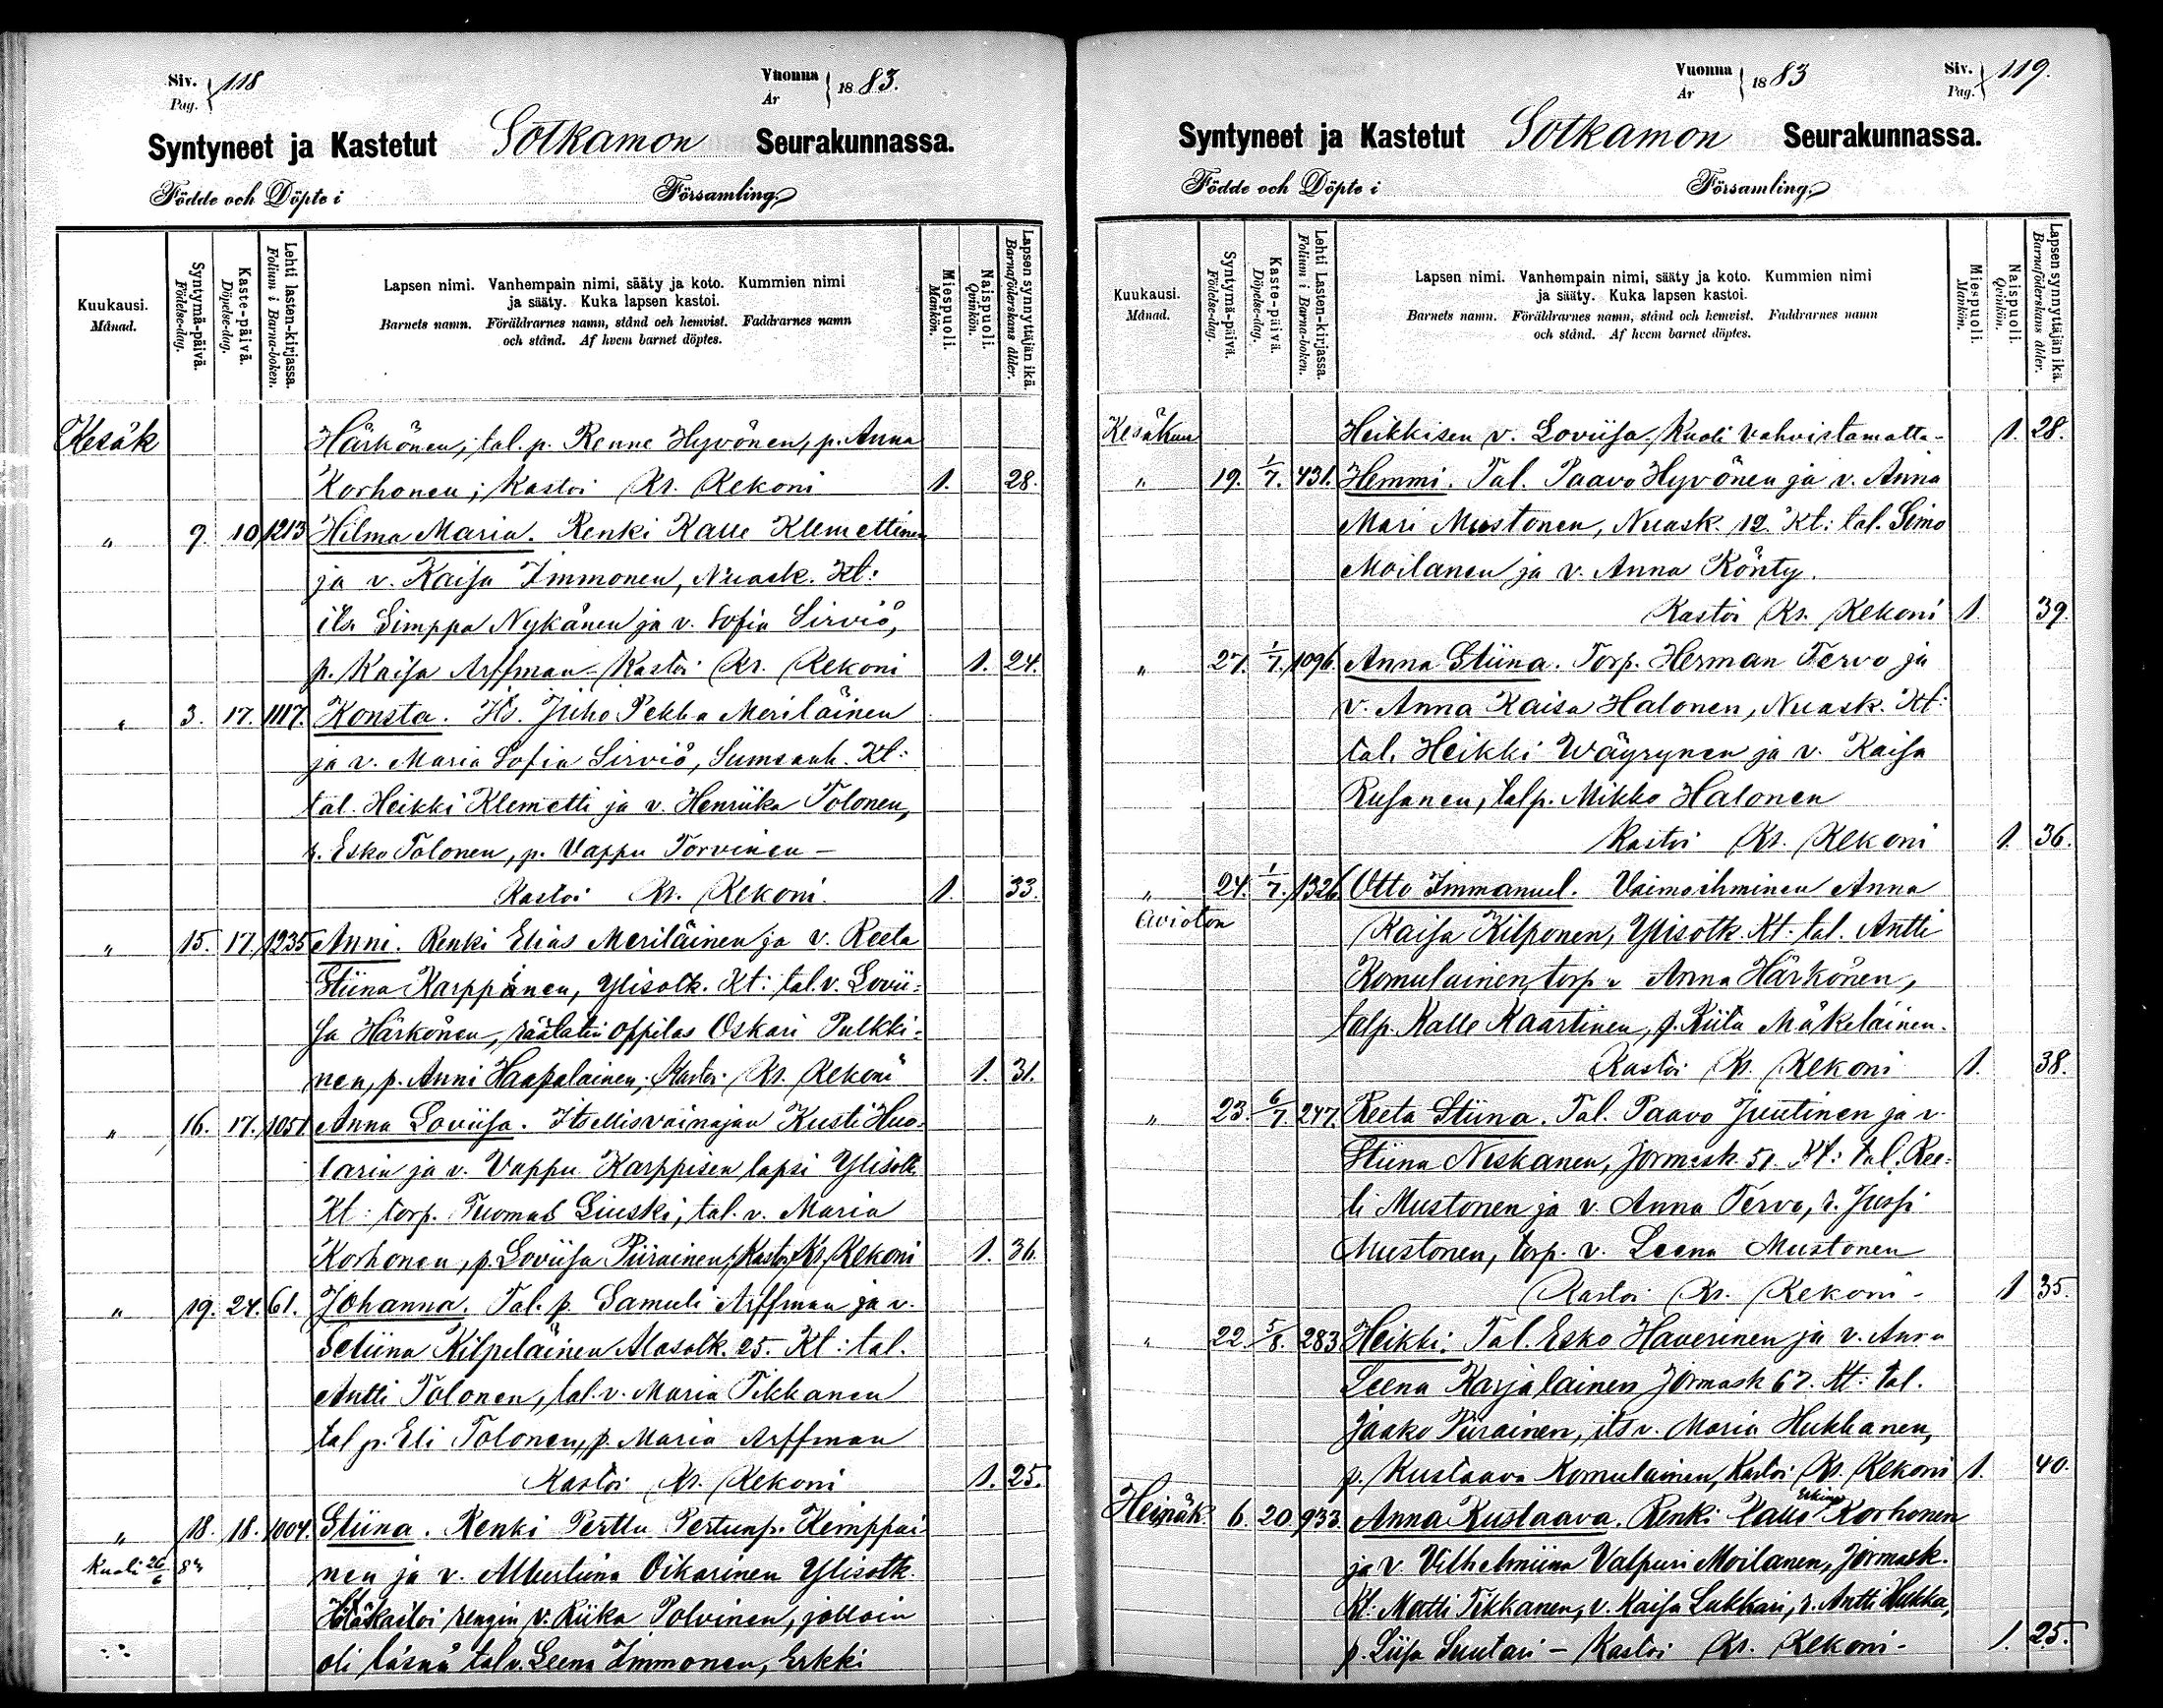 Siv. Pag. } 118
Vuonna År } 1883.
Syntyneet ja Kastetut Sotkamon Seurakunnassa.
Födde och Döpte i Församling.
Kuukausi. Månad.
Syntymä-päivä. Födelse-dag.
Kaste-päivä. Döpelse-dag.
Lehti lasten-kirjassa. Folium i Barna-boken.
Lapsen nimi. Vanhempain nimi, sääty ja koto. Kummien nimi
ja sääty. Kuka lapsen kastoi.
Barnets namn. Föräldrarnes namn, stånd och hemvist. Faddrarnes namn
och stånd. Af hvem barnet döptes.
Miespuoli. Mankön.
Naispuoli. Qvinkön.
Lapsen synnyttäjän ikä. Barnaföderskans ålder.
Kesäk Härkönen; tal. p. Renne Hyvönen, p. Anna
Korhonen; Kastoi Kr. Rekoni 1. 28.
" 9. 10 1213 Hilma Maria. Renki Kalle Klemettinen
ja v. Kaisa Immonen, Nuask. Kt:
its. Simppa Nykänen ja v. Sofia Sirviö,
p. Kaisa Arffman - Kastoi Kr. Rekoni 1. 24.
" 3. 17. 1117. Konsta. Its. Juho Pekka Meriläinen
ja v. Maria Sofia Sirviö, Sumsanh. Kt:
tal. Heikki Klemetti ja v. Henriika Tolonen,
r. Esko Tolonen, p. Vappu Torvinen -
Kastoi Kr. Rekoni. 1. 33.
" 15. 17. 1235 Anni. Renki Elias Meriläinen ja v. Reeta
Stiina Karppinen, Ylisotk. Kt: tal. v. Lovii-
sa Härkönen, räätalin oppilas Oskari Pulkki-
nen, p. Anni Haapalainen; Kastoi Kr. Rekoni 1. 31.
" 16. 17. 1051 Anna Loviisa. Itsellisvainajan Kusti Huo-
tarin ja v. Vappu Karppisen lapsi Ylisotk
Kt: torp. Tuomas Liuski, tal. v. Maria
Korhonen, p. Loviisa Piirainen; Kastoi Kr. Rekoni 1. 36.
" 19. 24. 61. Johanna. Tal. p. Samuli Arffman ja v.
Setiina Kilpeläinen Alasotk. 25. Kt: tal.
Antti Tolonen, tal. v. Maria Tikkanen
tal p. Eli Tolonen, p. Maria Arffman
Kastoi Kr. Rekoni 1. 25.
" 18. 18. 1004. Stiina. Renki Perttu Pertunp. Kemppai
Kuoli 26/6 83 nen ja v. Albertiina Oikarinen Ylisotk.
Hätäkastoi rengin v. Riika Polvinen, jolloin
oli läsnä talv. Leena Immonen, Erkki
Vuonna År } 1883
Siv. Pag. } 119.
Syntyneet ja Kastetut Sotkamon Seurakunnassa.
Födde och Döpte i Församling.
Kuukausi. Månad.
Syntymä-päivä. Födelse-dag.
Kaste-päivä. Döpelse-dag.
Lehti Lasten-kirjassa. Folium i Barna-boken.
Lapsen nimi. Vanhempain nimi, sääty ja koto. Kummien nimi
ja sääty. Kuka lapsen kastoi.
Barnets namn. Föräldrarnes namn, stånd och hemvist. Faddrarnes namn
och stånd. Af hvem barnet döptes.
Miespuoli. Mankön.
Naispuoli. Qvinkön.
Lapsen synnyttäjän ikä. Barnaföderskans ålder.
Kesäkuu Heikkisen v. Loviisa. Kuoli vahvistamatta - 1. 28.
" 19. 1/7. 431. Hemmi. Tal. Paavo Hyvönen ja v. Anna
Mari Mustonen, Nuask. 12. Kt: tal. Simo
Moilanen ja v. Anna Könty.
Kastoi Kr. Rekoni 1. 39.
" 27. 1/7. 1096. Anna Stiina. Torp. Herman Tervo ja
v. Anna Kaisa Halonen, Nuask. Kt:
tal. Heikki Wäyrynen ja v. Kaisa
Rusanen, talp. Mikko Halonen
Kastoi Kr. Rekoni 1. 36.
" 24. 1/7. 1326 Otto Immanuel. Vaimoihminen Anna
Avioton Kaisa Kilponen, Ylisotk. Kt: tal. Antti
Komulainen, torp v Anna Härkönen,
talp. Kalle Kaartinen, p. Riita Mäkeläinen.
Kastoi Kr. Rekoni 1. 38.
" 23. 6/7. 247. Reeta Stiina. Tal. Paavo Juutinen ja v.
Stiina Niskanen, Jormask. 51. Kt: tal. Ree-
ti Mustonen ja v. Anna Tervo, r. Jussi
Mustonen, torp. v. Leena Mustonen
Kastoi Kr. Rekoni - 1 35.
" 22. 5/8. 283 Heikki. Tal. Esko Haverinen ja v. Anna
Leena Karjalainen Jormask 67. Kt: tal.
Jaako Piirainen, its v. Maria Hukkanen,
p. Kustaava Komulainen, Kastoi Kr. Rekoni 1. 40.
Heinäk 6. 20 933. Anna Kustaava. Renki Kalle Erkinp Korhonen
ja v. Vilhelmiina Valpuri Moilanen, Jormask.
Kt: Matti Tikkanen, v. Kaisa Lukkari, r. Antti Hukka,
p. Liisa Suutari - Kastoi Kr. Rekoni - 1. 25.